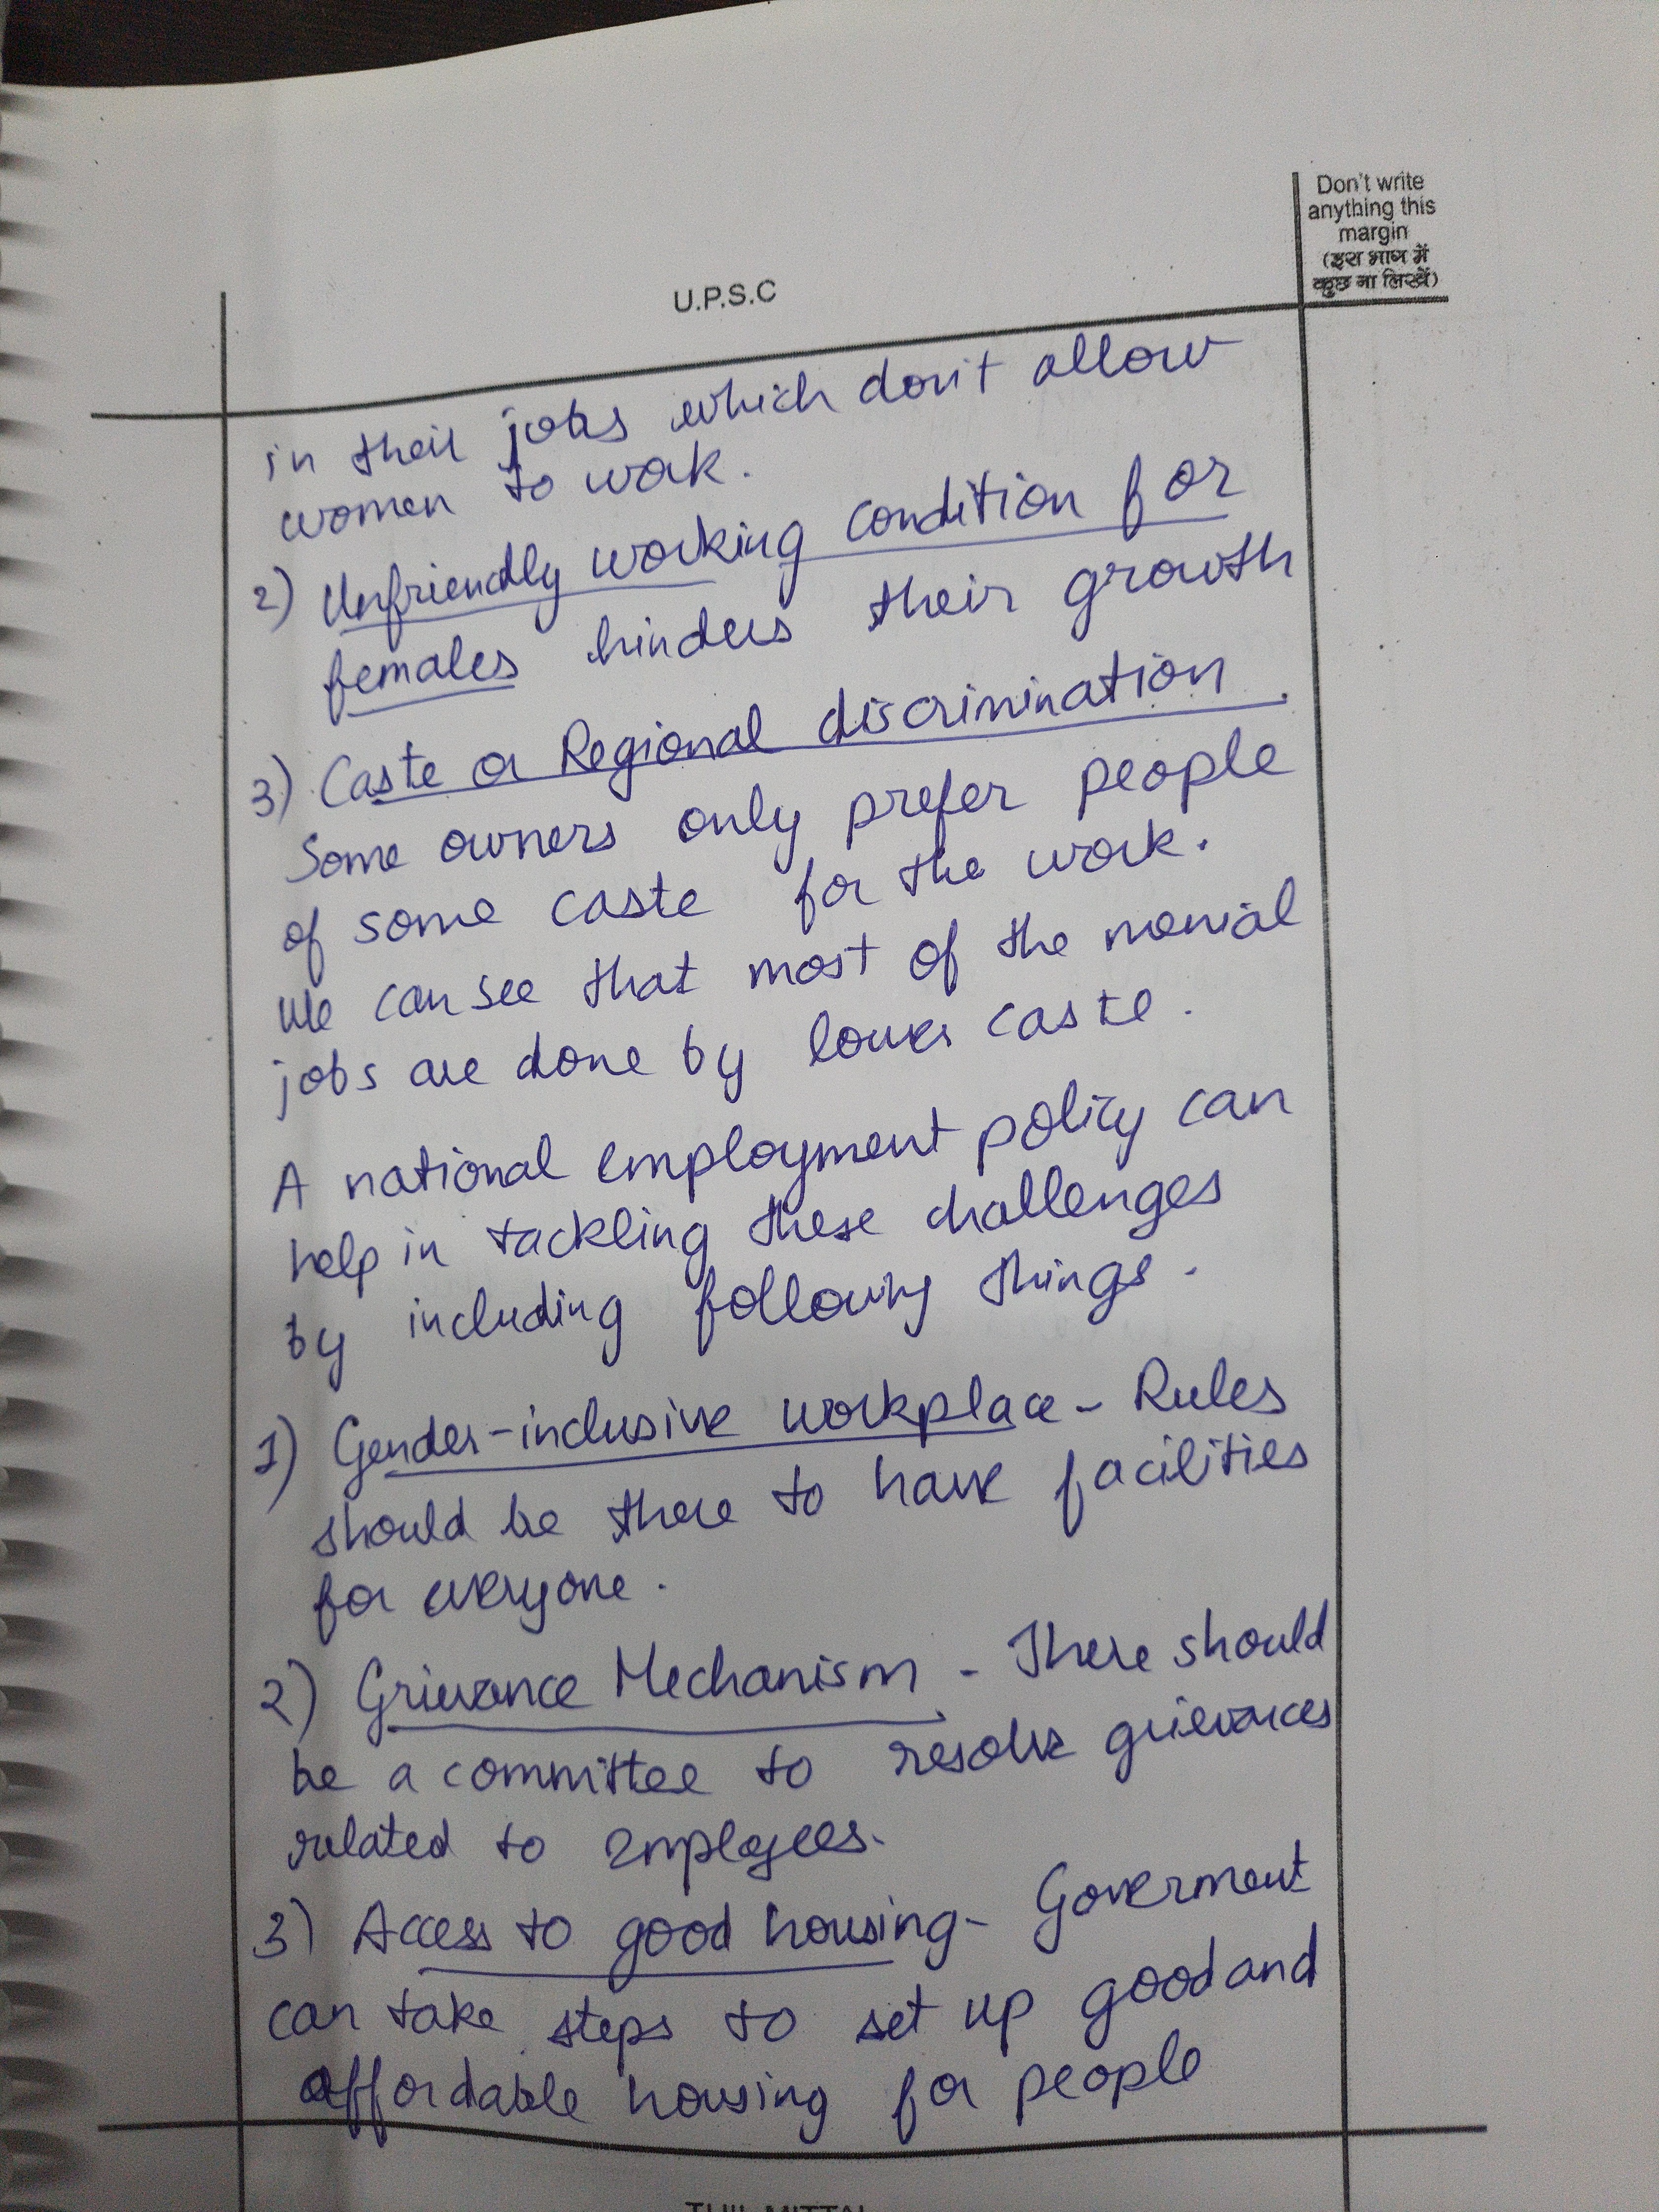 Don't write
anything this
margin
(इस भाग में
कुछ ना लिखें)
U.P.S.C
in their jobs which don't allow
women to work.
2) Unfriendly working condition for
females hinders their growth
3) Caste or Regional discrimination.
Some owners only prefer people
of some caste for the work.
We can see that most of the menial
jobs are done by lower caste.
A national employment policy can
help in tackling these challenges
by including following things.
1) Gender-inclusive workplace - Rules
should be there to have facilities
for everyone.
2) Grievance Mechanism - There should
be a committee to resolve grievances
related to employees.
3) Access to good housing - Goverment
can take steps to set up good and
affordable housing for people